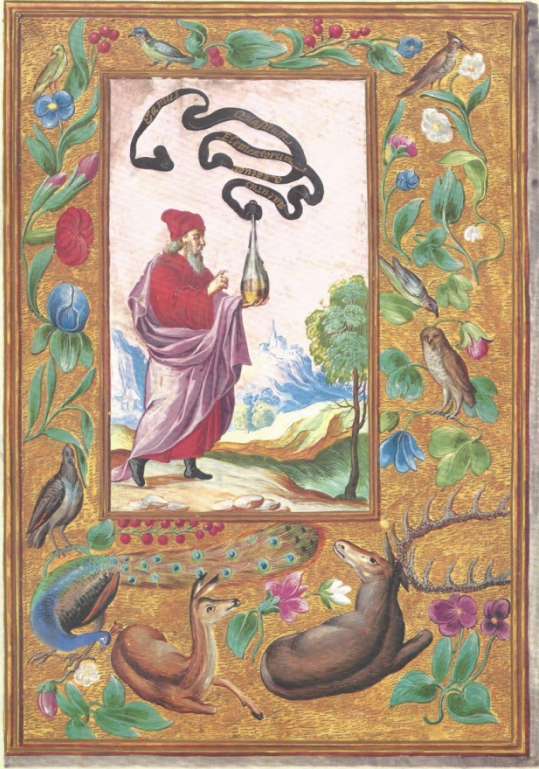 Eamus
Quesitum
Elementorum
naturas